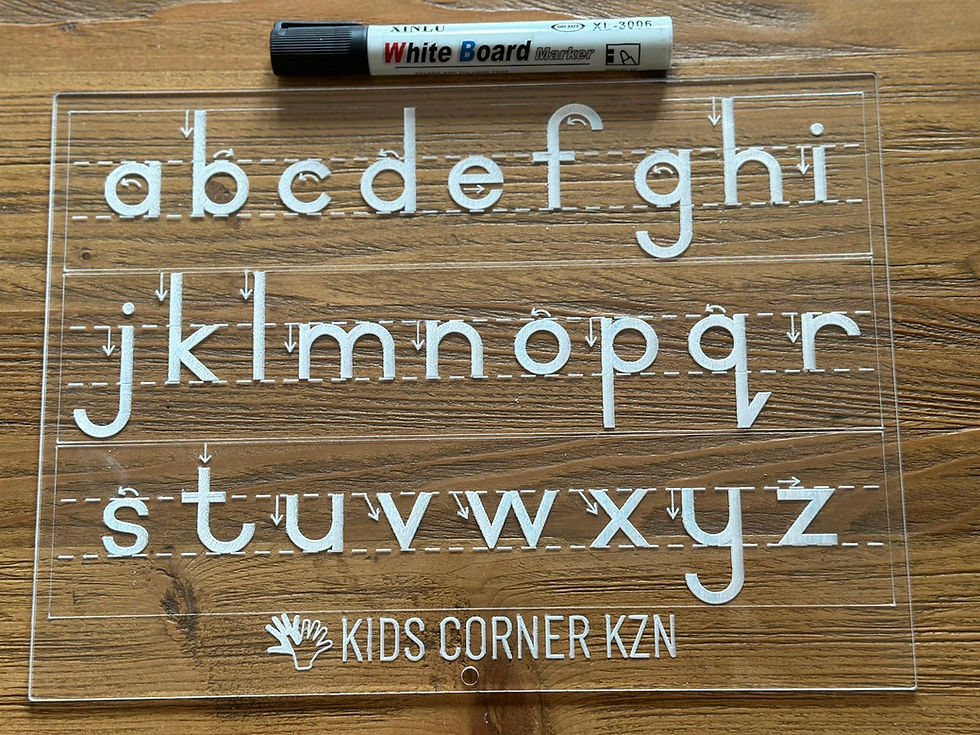 XINLU DRY SAFE XL-3006
White Board Marker
a b c d e f g h i
j k l m n o p q r
s t u v w x y z
KIDS CORNER KZN